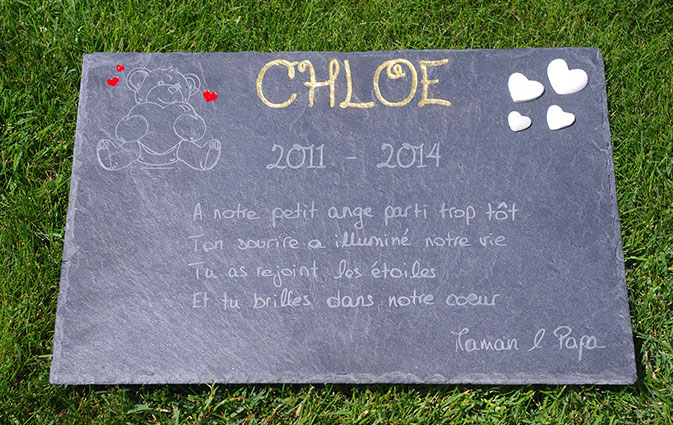 CHLOE
2011 - 2014
A notre petit ange parti trop tôt
Ton sourire a illuminé notre vie
Tu as rejoint les étoiles
Et tu brilles dans notre coeur
Maman & Papa